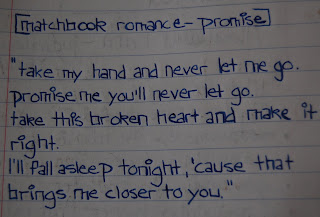 [matchbook romance - promise]
"take my hand and never let me go.
promise me you'll never let go.
take this broken heart and make it
right.
I'll fall asleep tonight, 'cause that
brings me closer to you."